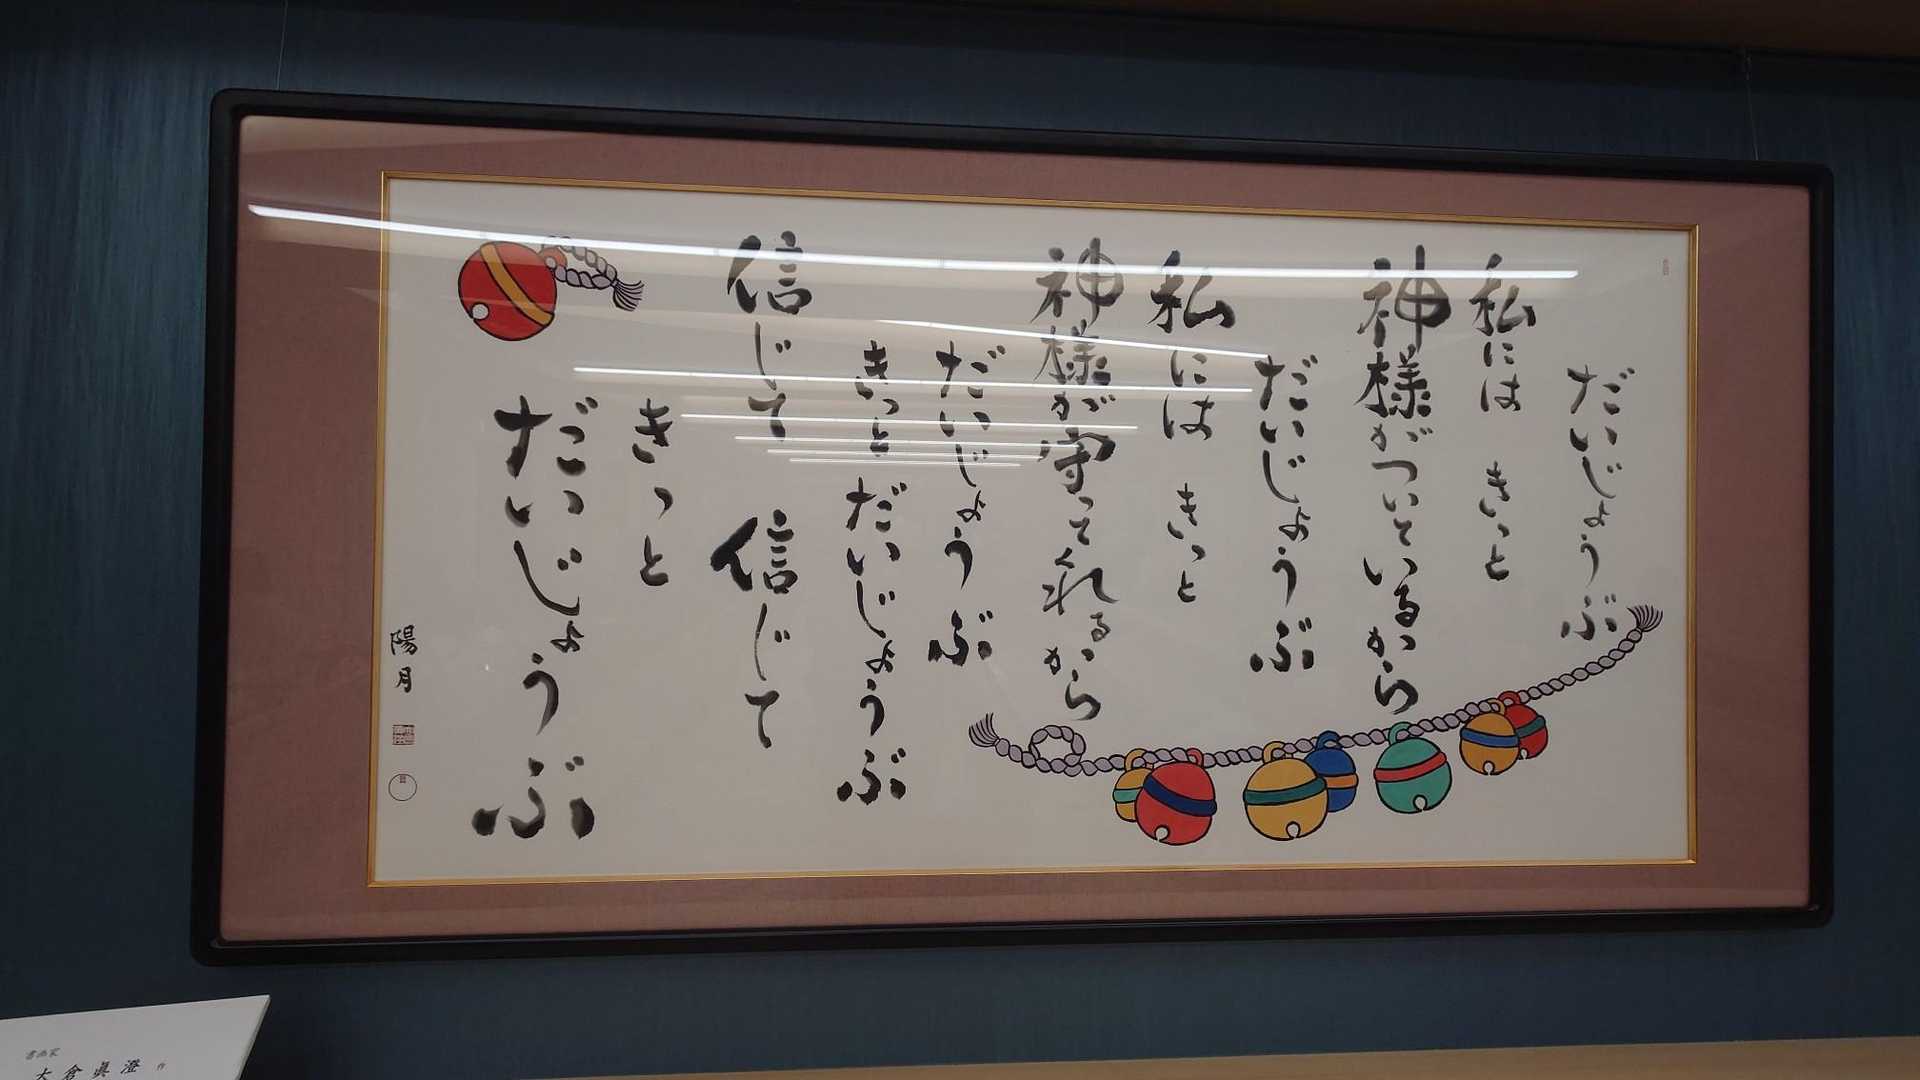 だいじょうぶ
私には きっと
神様がついているから
だいじょうぶ
私には きっと
神様が守って礼るから
だいじょうぶ
きっと だいじょうぶ
信じて 信じて
きっと
だいじょうぶ
陽月
書画家
大倉眞澄 作